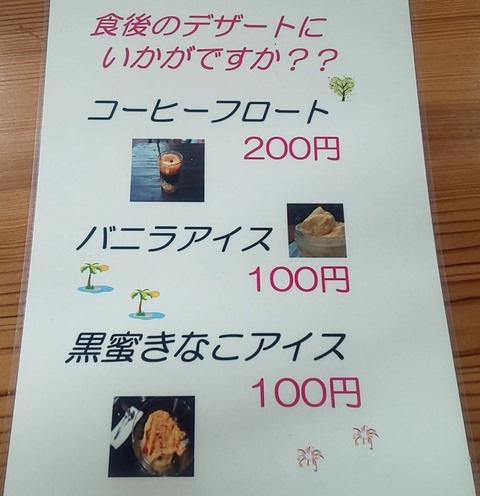 食後のデザートに
いかがですか？？
コーヒーフロート
200円
バニラアイス
100円
黒蜜きなこアイス
100円